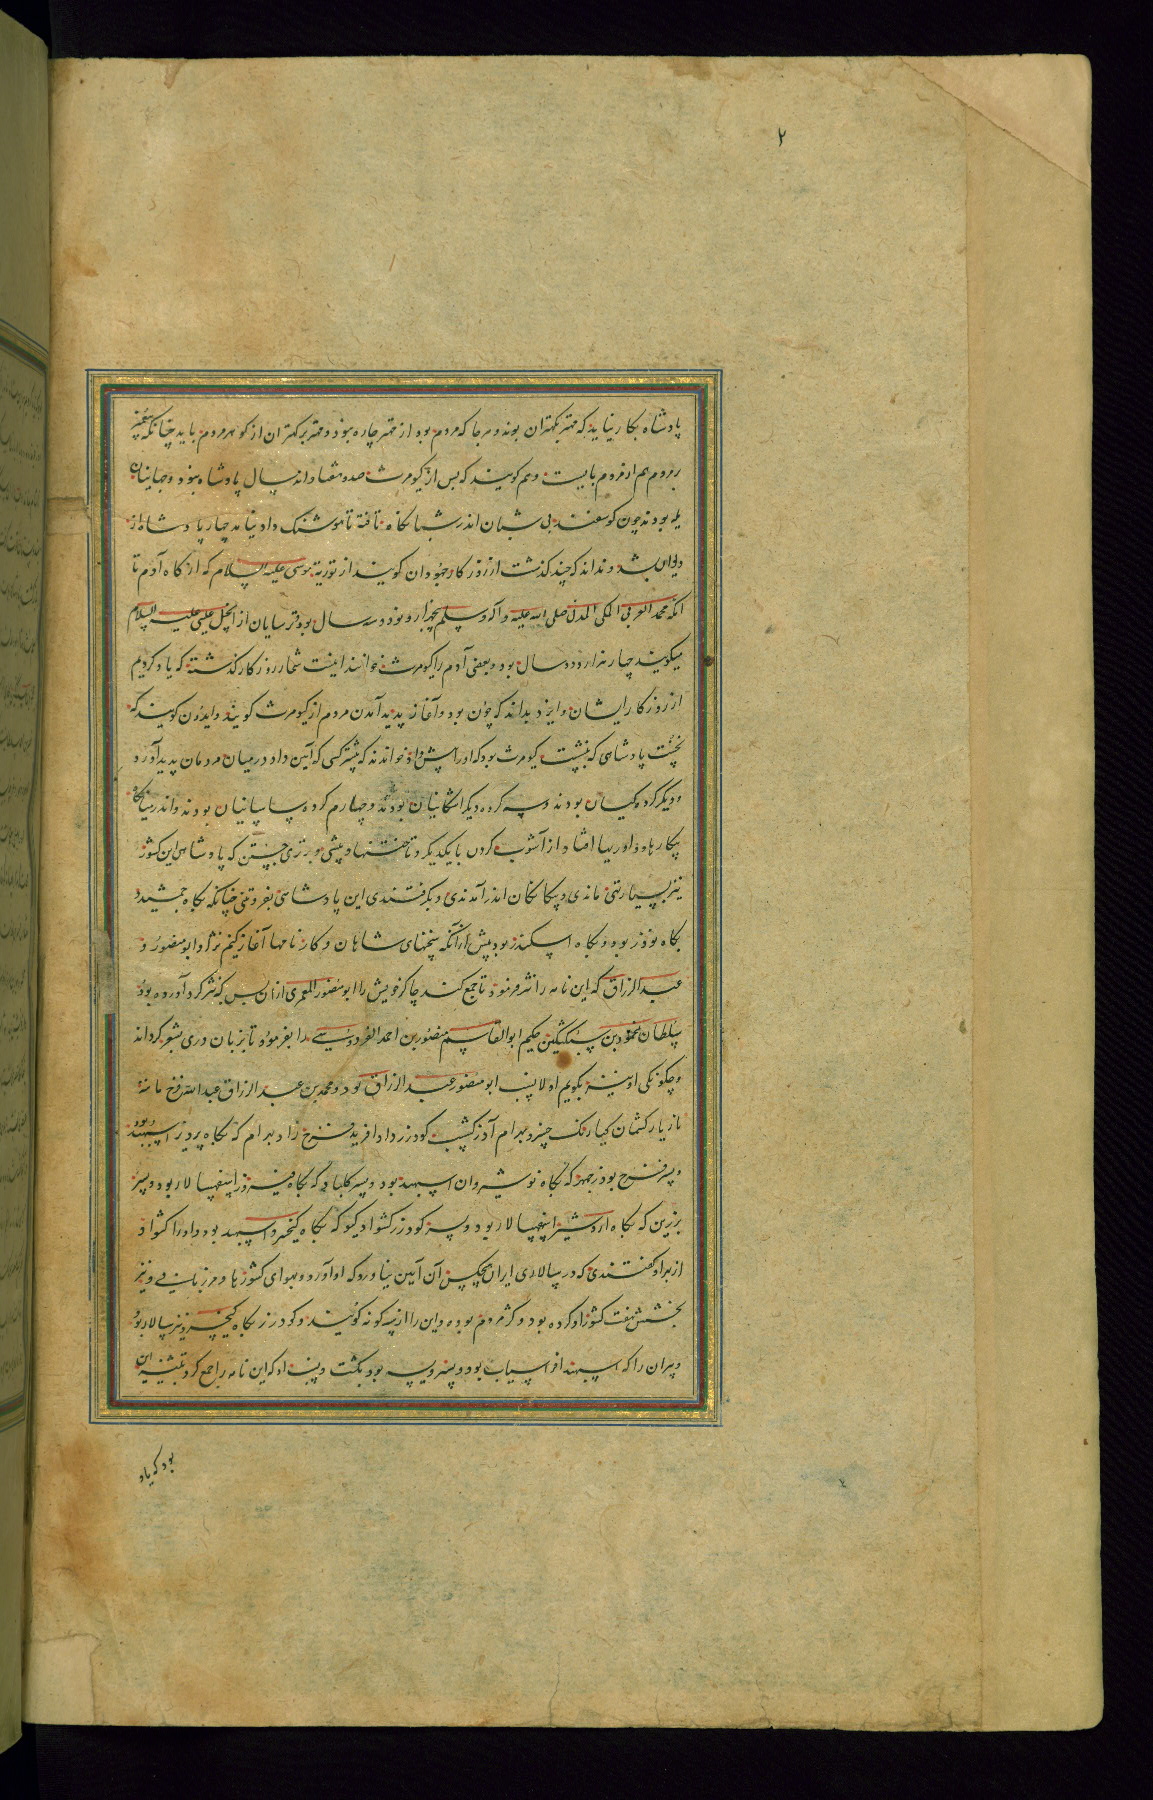 ۲
پادشاه بکار نیاید که مهتر بکهتران بوند و هر جا که مردم بود از مهتر چاره نبود و مهتر بر کهتران از کوهر مردم باید چنانکه پیغمبر
بر مردم هم از مردم بایست و هم کویند که پس از کیومرث صد و هفتاد و اند سال پادشاه نبود و جهانیان
یله بودند چون کوسفند بی شبان اندر شبانکاه تا هوشنک داد نیامد چهار بار پادشاه از
دیوان بشد و نداند که چند کذشت از روزکار جهودان کویند از توریة موسی علیه السلام که از کاه آدم تا
انکه محمد العربی المکی المدنی صلی الله علیه و اله و سلم پنجهزار و نود و سه سال بود و ترسایان از انجیل عیسی علیه السلام
میکویند چهار هزار و دو سال بود و بعضی آدم را کیومرث خوانند اینست شمار روزکار کذشته که یاد کردیم
از روزکار ایشان و ایزد بداند که چون بود و آغاز پدید آمدن مردم از کیومرث کویند و ایدون کویند که
نخست پادشاهی که بنشست کیومرث بود که او را پیش داد خواندند که پیشتر کسی که آیین داد در میان مردمان پدید آورد و
و دیکر کروه کیان بودند و سه کروه دیکر اشکانیان بودند و چهارم کروه ساسانیان بودند و اندر میانکاه
پیکارها و داوریها افتاد از آشوب کردن بایکدیکر و تاختنها و پیشی و برتری جستن که پادشاهی این کشور
نیز بسیار تهی ماندی و بیکانکان اندر آمدندی و بکرفتندی این پادشاهی بفروتنی چنانکه بکاه جمشید و
بکاه نوذر بود و بکاه اسکندر بود پیش از آنکه سخنهای شاهان و کارنامها آغاز کنیم نژاد ابو منصور و
عبد الرزاق که این نامه را نثر فرمود تا جمع کند چاکر خویش را ابو منصور المعمری از ان پس که نثر کرد آورده بود
سلطان محمود بن سبکتکین حکیم ابو القاسم منصور بن احمد الفردوسی را بفرمود تا بزبان دری بشعر کرداند
و چکونکی او نیز بکویم اولا نسب ابو منصور عبد الرزاق بود و محمد بن عبد الرزاق عبد الله فرخ ماسه
مازیار کشمان کیارنک خسرو بهرام آذرکشسب کودرز داد افرید فرخ زاد بهرام که بکاه پرویز اسپهبد بود
و پسر فرخ بوذرجمهر که بکاه نوشیروان اسپهبد بود و پسر کلباد که بکاه فیروز اسپهسالار بود و پسر
برزین که بکاه اردشیر اسپهسالار بود و پسر کودرز کشواد کیو که بکاه کیخسرو اسپهبد بود و او را کشواد
از بهر او کفتندی که در سالاری ایران هیچکس آن آیین نیاورد که او آورد و بهوای کشورها و مرزبانی و نیز
بخشش هفت کشور او کرده بود و کژ مردم بوده و این را از سه کونه کویند و کودرز بکاه کیخسرو نیز سالار بود
و پیران را که اسپهبد افراسیاب بود و پسر ویسه بود بکشت و نسب او که این نامه را جمع کرد بتبشیر این
بود که یاد